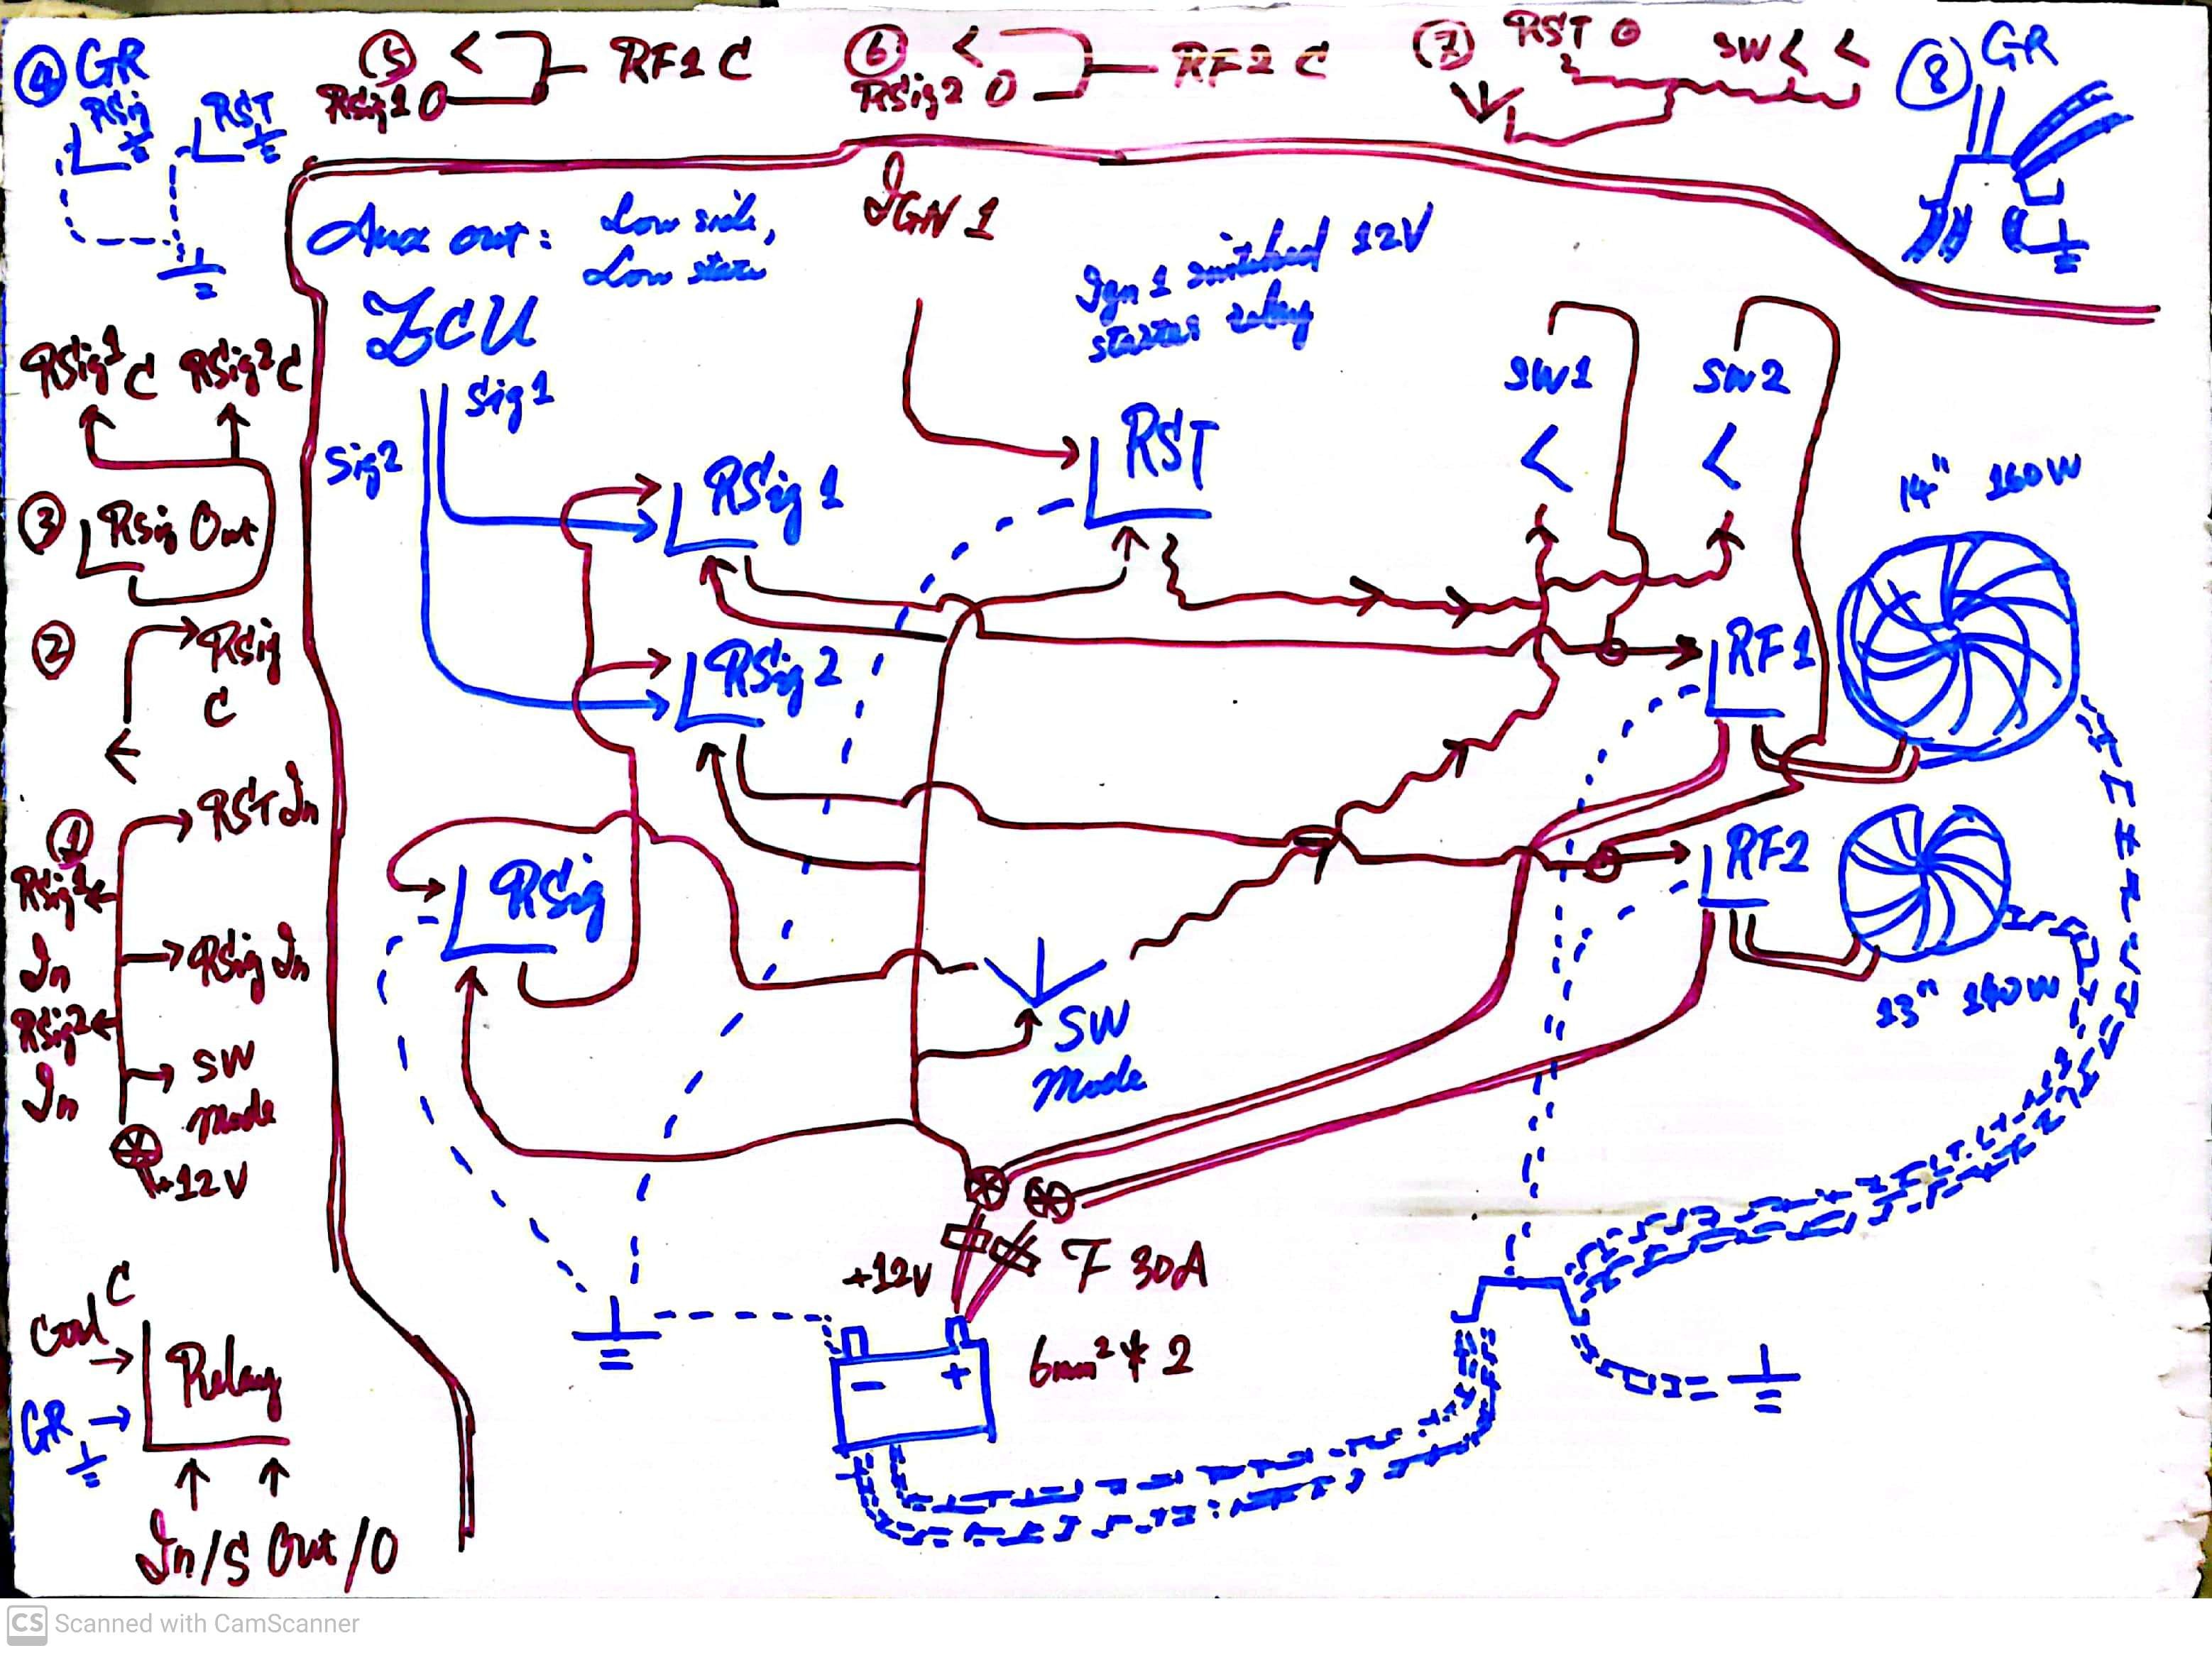 ④ GR
RSig
RST
⑤ <
RSig1 O
RF1 C
⑥ <
RSig2 O
RF2 C
⑦ RST O
SW < <
⑧ GR
Aux out: Low side,
Low state
IGN 1
Ign 1 switched 12V
starter relay
ECU
Sig1
Sig2
RSig1 C
RSig2 C
③ RSig Out
② RSig
C
① RST In
RSig1
In
RSig In
RSig2
In
SW
Mode
+12V
Coil C
GR
Relay
In/S Out/O
RSig 1
RST
SW1
SW2
14" 160W
RSig 2
RF1
RSig
RF2
13" 140W
SW
Mode
+12V
F 30A
- +
6mm² * 2
CS Scanned with CamScanner